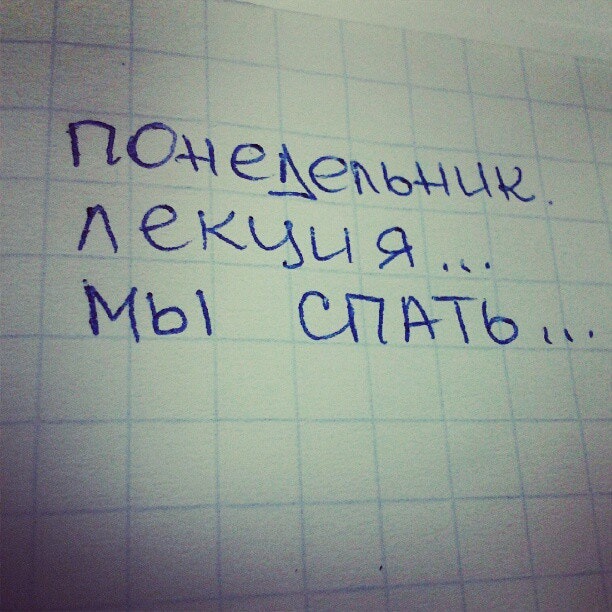 понедельник.
лекция...
мы спать...